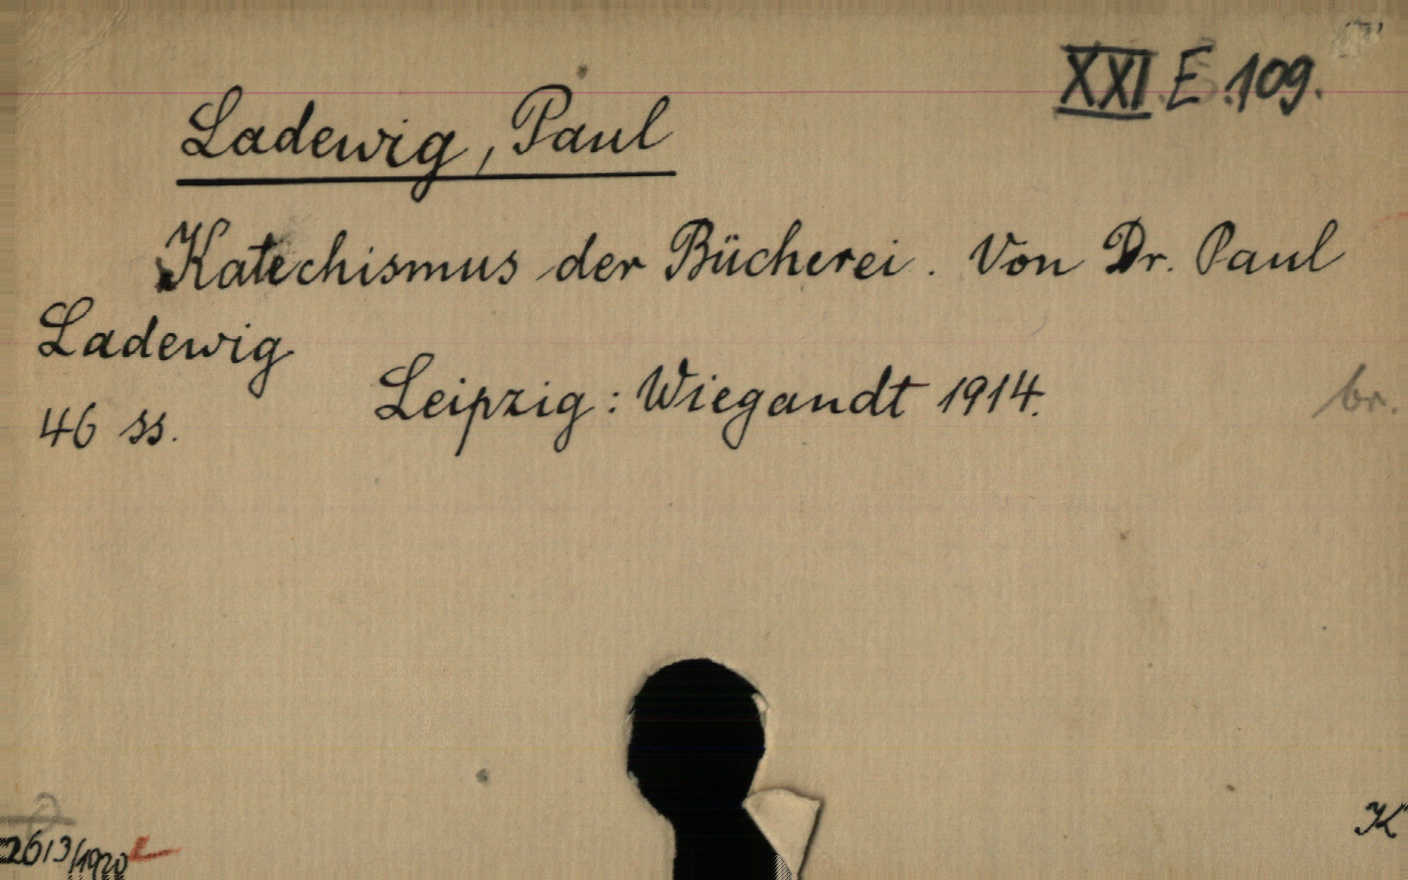 XXI E 109.
Ladewig, Paul
Katechismus der Bücherei. Von Dr. Paul
Ladewig
Leipzig: Wiegandt 1914.
br.
46 ss.
K
2613/1920